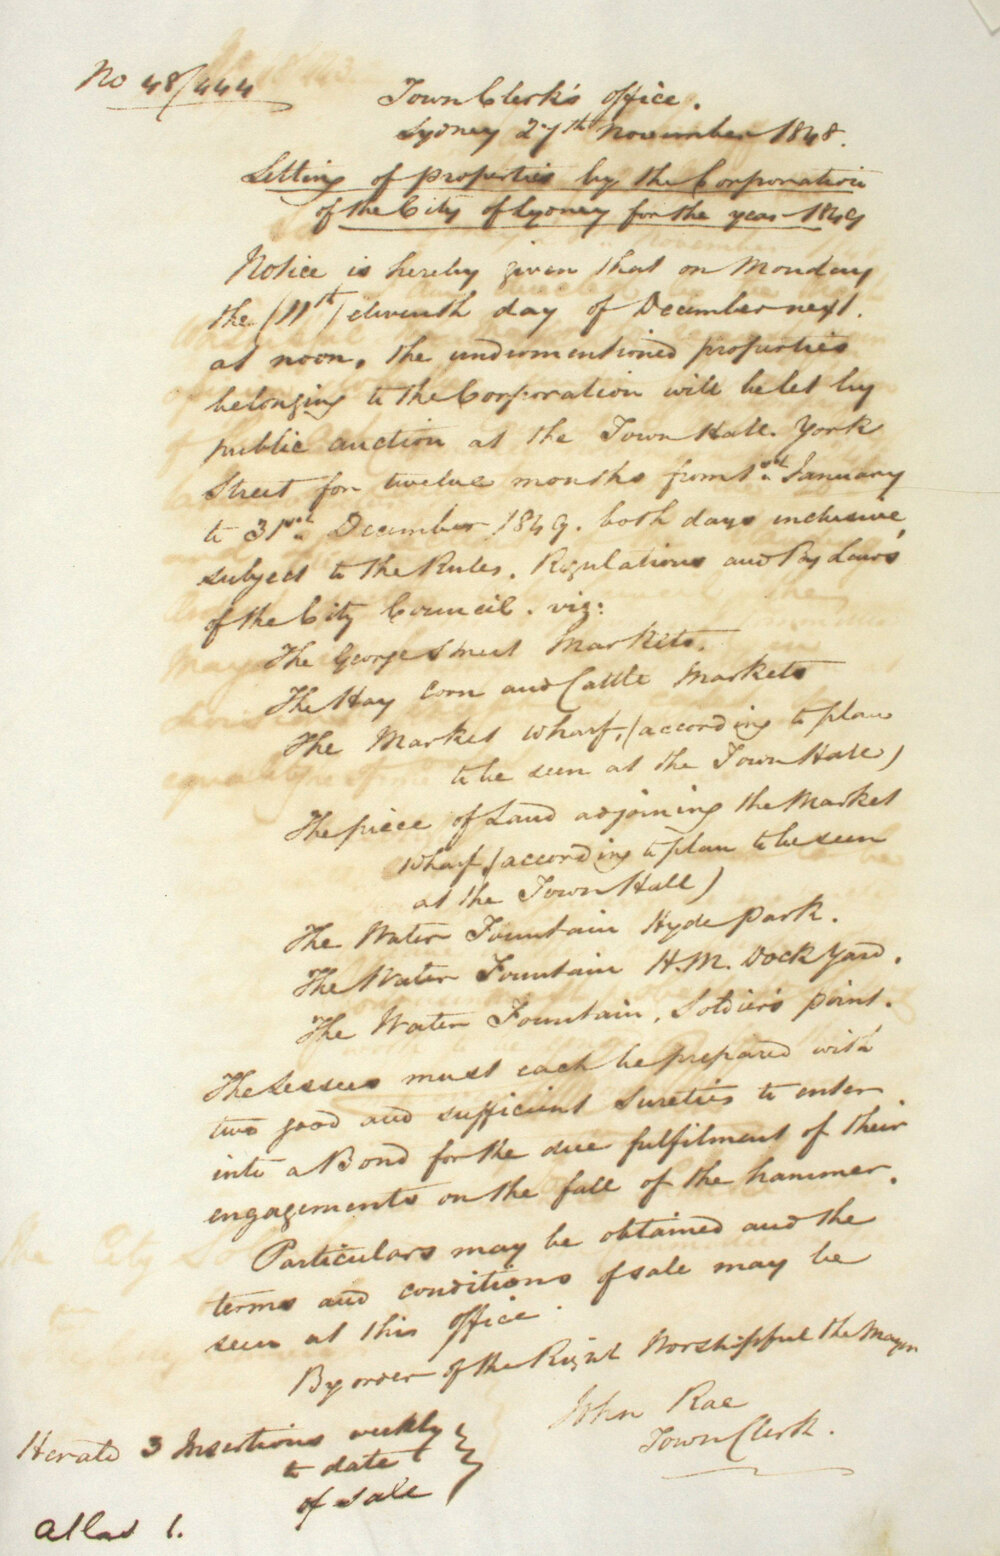 No 48/444
Town Clerk's office.
Sydney 27th November 1848.
Letting of properties by the Corporation
of the City of Sydney for the year 1849
Notice is hereby given that on Monday
the (11th) eleventh day of December next.
at noon, the undermentioned properties
belonging to the Corporation will be let by
public auction at the Town Hall. York
Street for twelve months from 1st January
to 31st December 1849. both days inclusive,
subject to the Rules, Regulations and By Laws
of the City Council. viz:
The George Street Markets.
The Hay Corn and Cattle Markets
The Market Wharf, (according to plan
to be seen at the Town Hall)
The piece of Land adjoining the Market
Wharf, (according to plan to be seen
at the Town Hall)
The Water Fountain Hyde Park.
The Water Fountain H.M. Dock Yard.
The Water Fountain, Soldier's point.
The Lessees must each be prepared with
two good and sufficient Sureties to enter
into a Bond for the due fulfilment of their
engagements on the fall of the hammer.
Particulars may be obtained and the
terms and conditions of sale may be
seen at this office.
By order of the Right Worshipful the Mayor
John Rae
Town Clerk.
Herald 3 Insertions weekly
to date
of sale
Atlas 1.